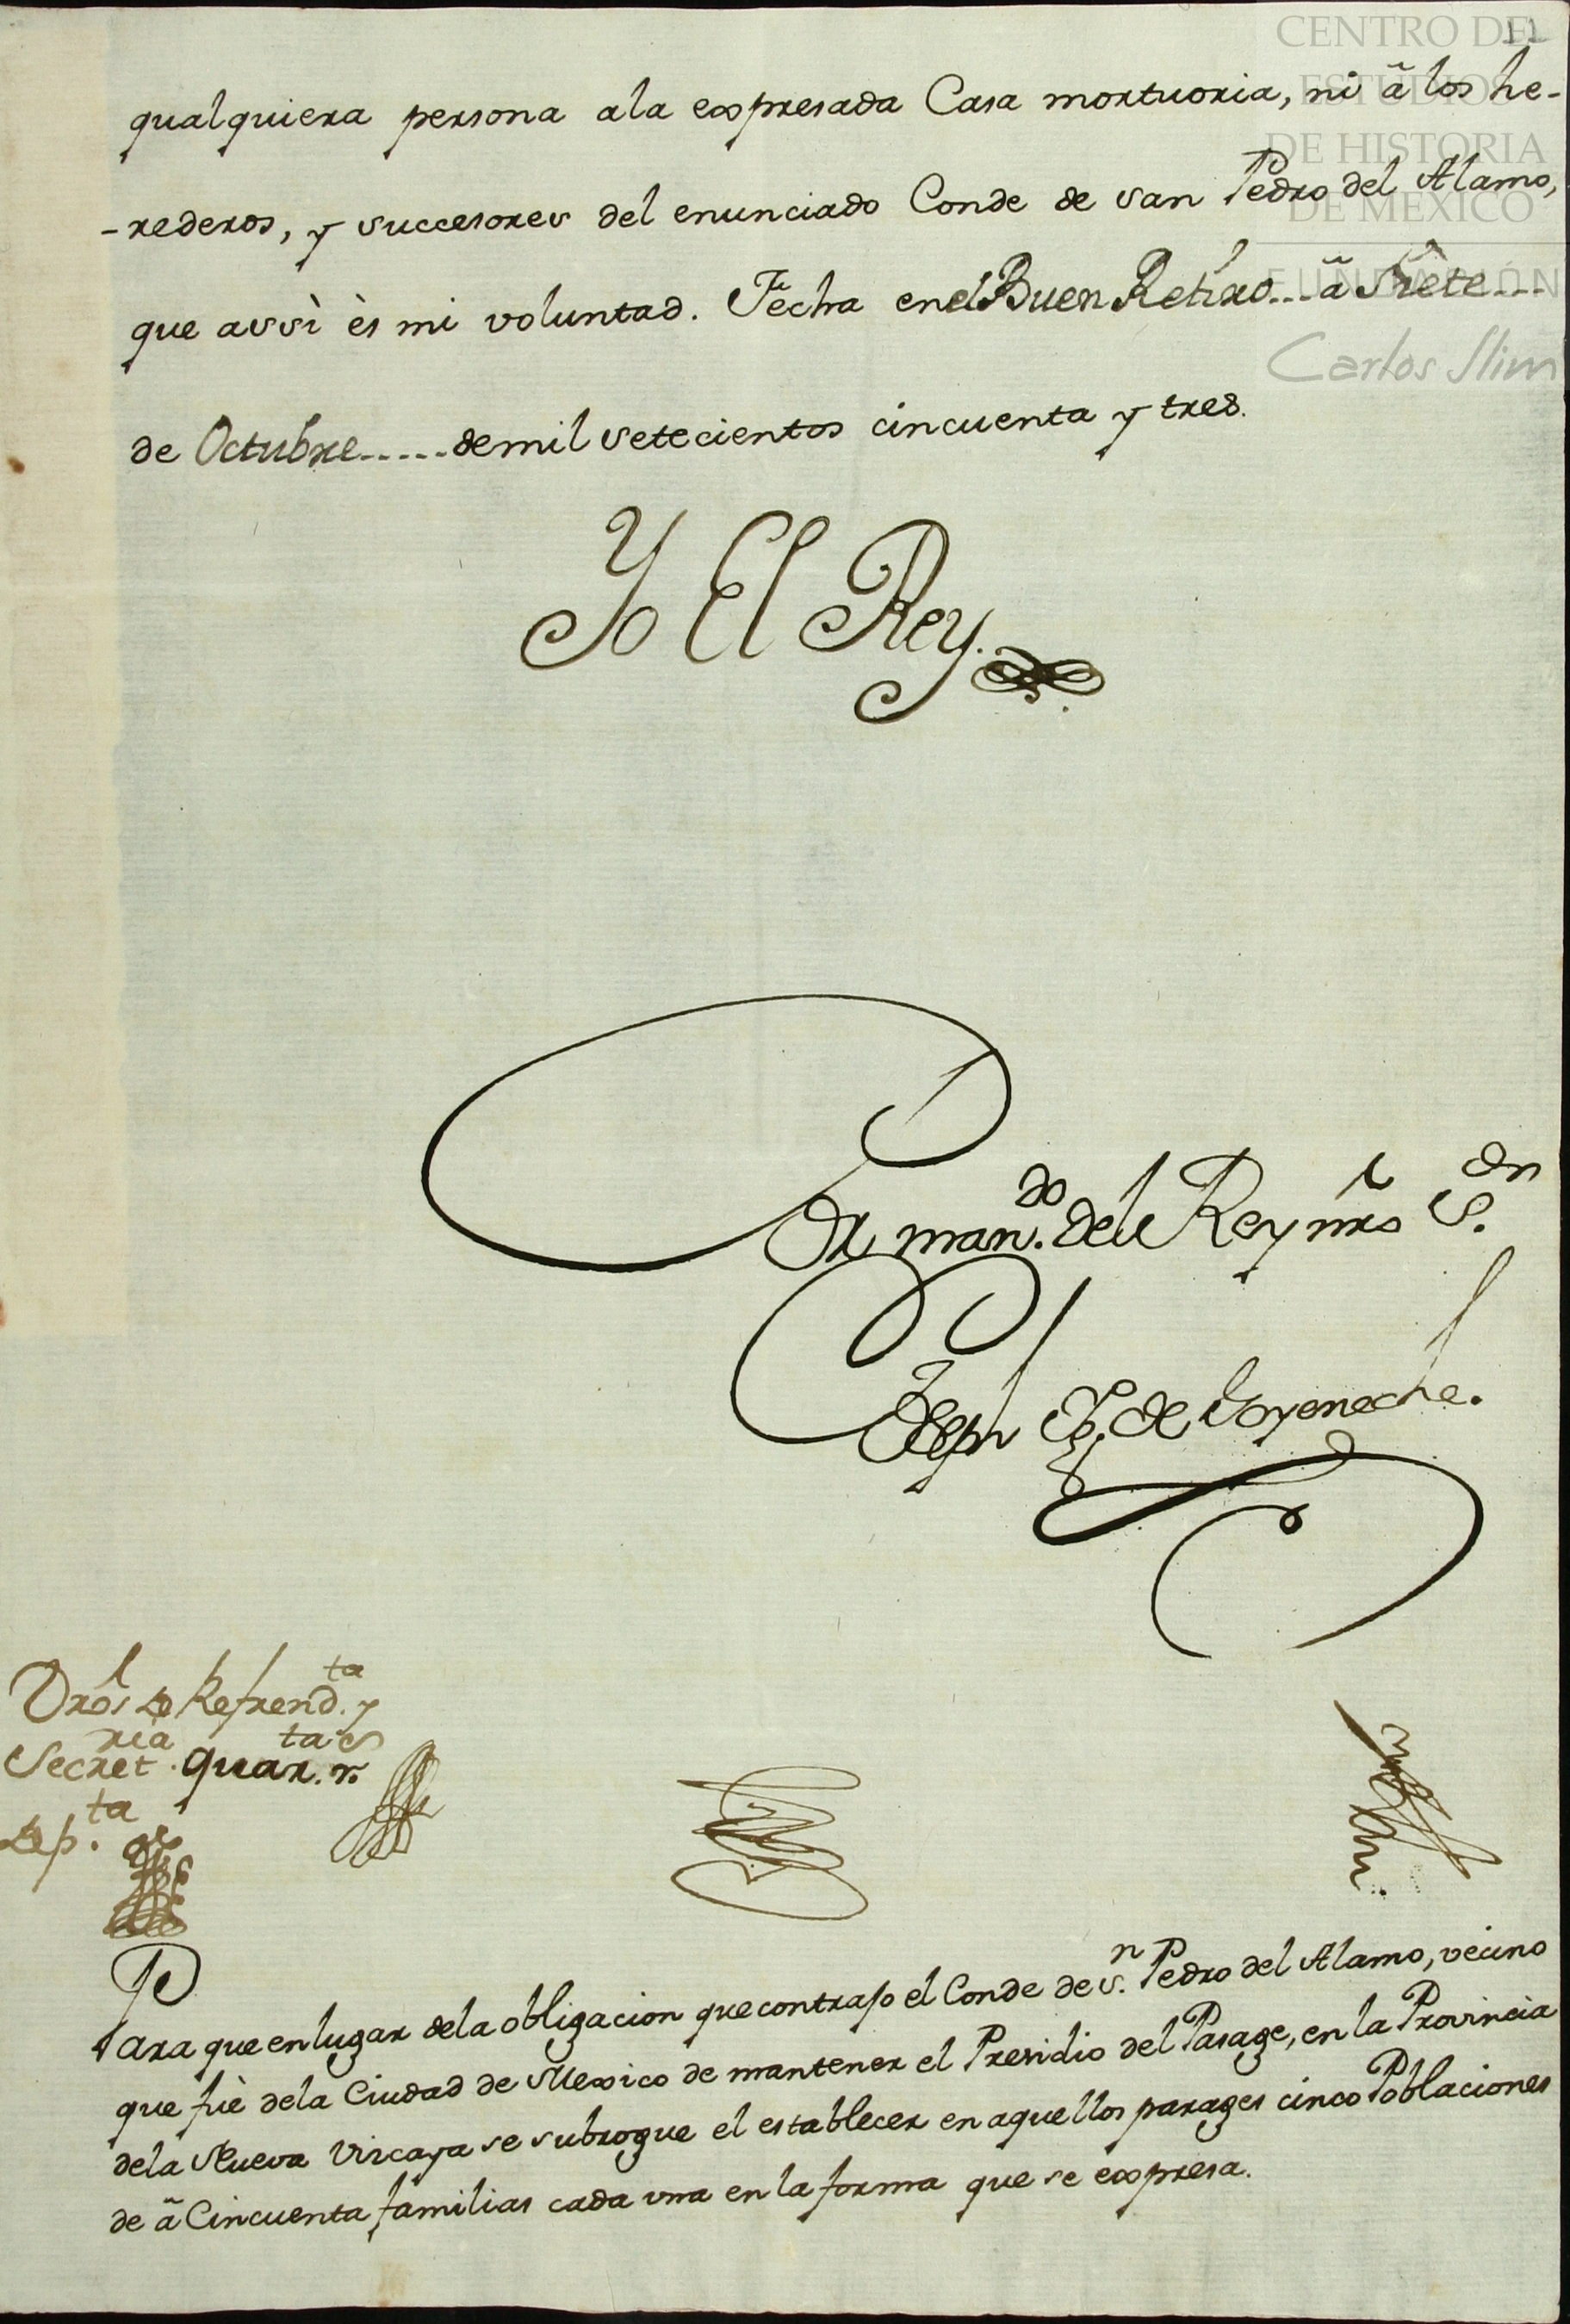 11
CENTRO DE
ESTUDIOS
DE HISTORIA
DE MEXICO
FUNDACIÓN
Carlos Slim
qualquiera persona ala expresada Casa mortuoria, ni ã los he-
-rederos, y successores del enunciado Conde de san Pedro del Alamo,
que assì ès mi voluntad. Fecha enel Buen Retiro... ã siete....
de Octubre..... demil setecientos cincuenta y tres.
Yo El Rey.
Por man.do del Rey nro S.or
Joseph Ig.o de Goyeneche.
Dros de Refrend.ta y
Secret.ria quar.ta r.s
de p.ta
Para que en lugar dela obligacion que contrajo el Conde de S.n Pedro del Alamo, vecino
que fuè dela Ciudad de Mexico de mantener el Presidio del Pasage, en la Provincia
dela Nueva Vizcaya se subrogue el establecer en aquellos parages cinco Poblaciones
de ã Cincuenta familias cada vna en la forma que se expresa.